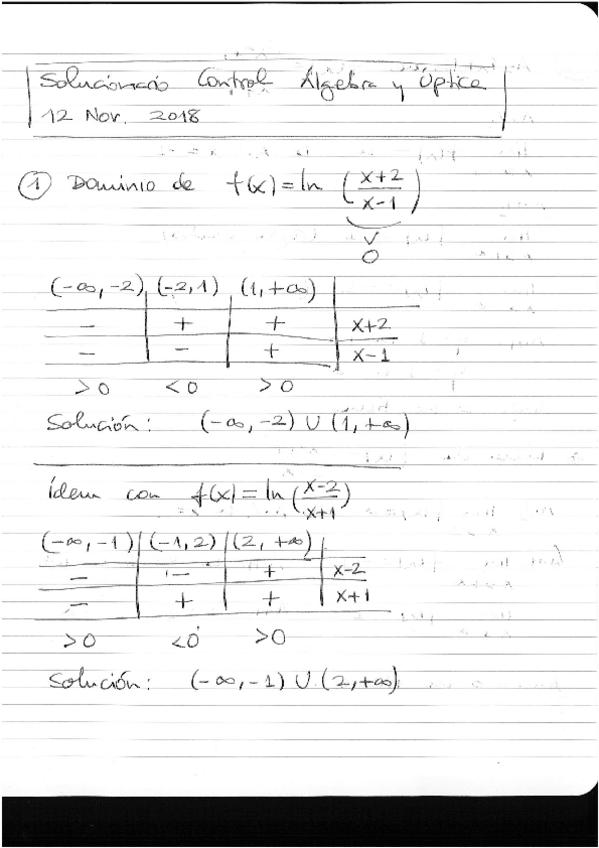 Solucionario Control Álgebra y Óptica
12 Nov. 2018
① Dominio de f(x) = ln (x+2 / x-1)
∨
0
(-∞, -2) (-2, 1) (1, +∞)
- + + x+2
- - + x-1
>0 <0 >0
Solución: (-∞, -2) ∪ (1, +∞)
ídem con f(x) = ln (x-2 / x+1)
(-∞, -1) (-1, 2) (2, +∞)
- - + x-2
- + + x+1
>0 <0 >0
Solución: (-∞, -1) ∪ (2, +∞)